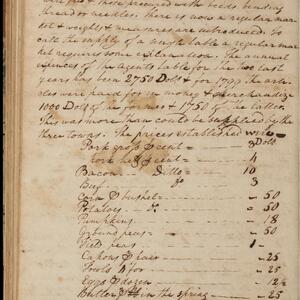 wire & those procured with beeds binding
thread or needles. there is now a regular mar
ket & weights & measures are introduced. To
call the supply of a single table a regular mar
ket requires some explanation. The annual
expences of the Agents table for the two last
years has been 2750 Dolls & for 1797 the arti
cles were paid for in money & merchandize
1000 Dolls of the former & 1750 of the latter
This was more than could be supplied by the
three towns. The prices established were
Dolls
Pork gross P cent – 3
pork net P cent – 4
Bacon ditto – 10
Beef do – 3
Corn P bushel – 50
Potatoes do – 50
Pumpkins – 18
Ground peas – 50
Field peas – 1
Capons P pair – 25
Fowls 4 for – 25
Eggs P dozen – 12½
Butter P lb in the spring – 25